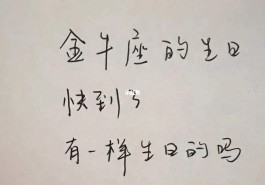 金牛座的生日
快到了
有一样生日的吗